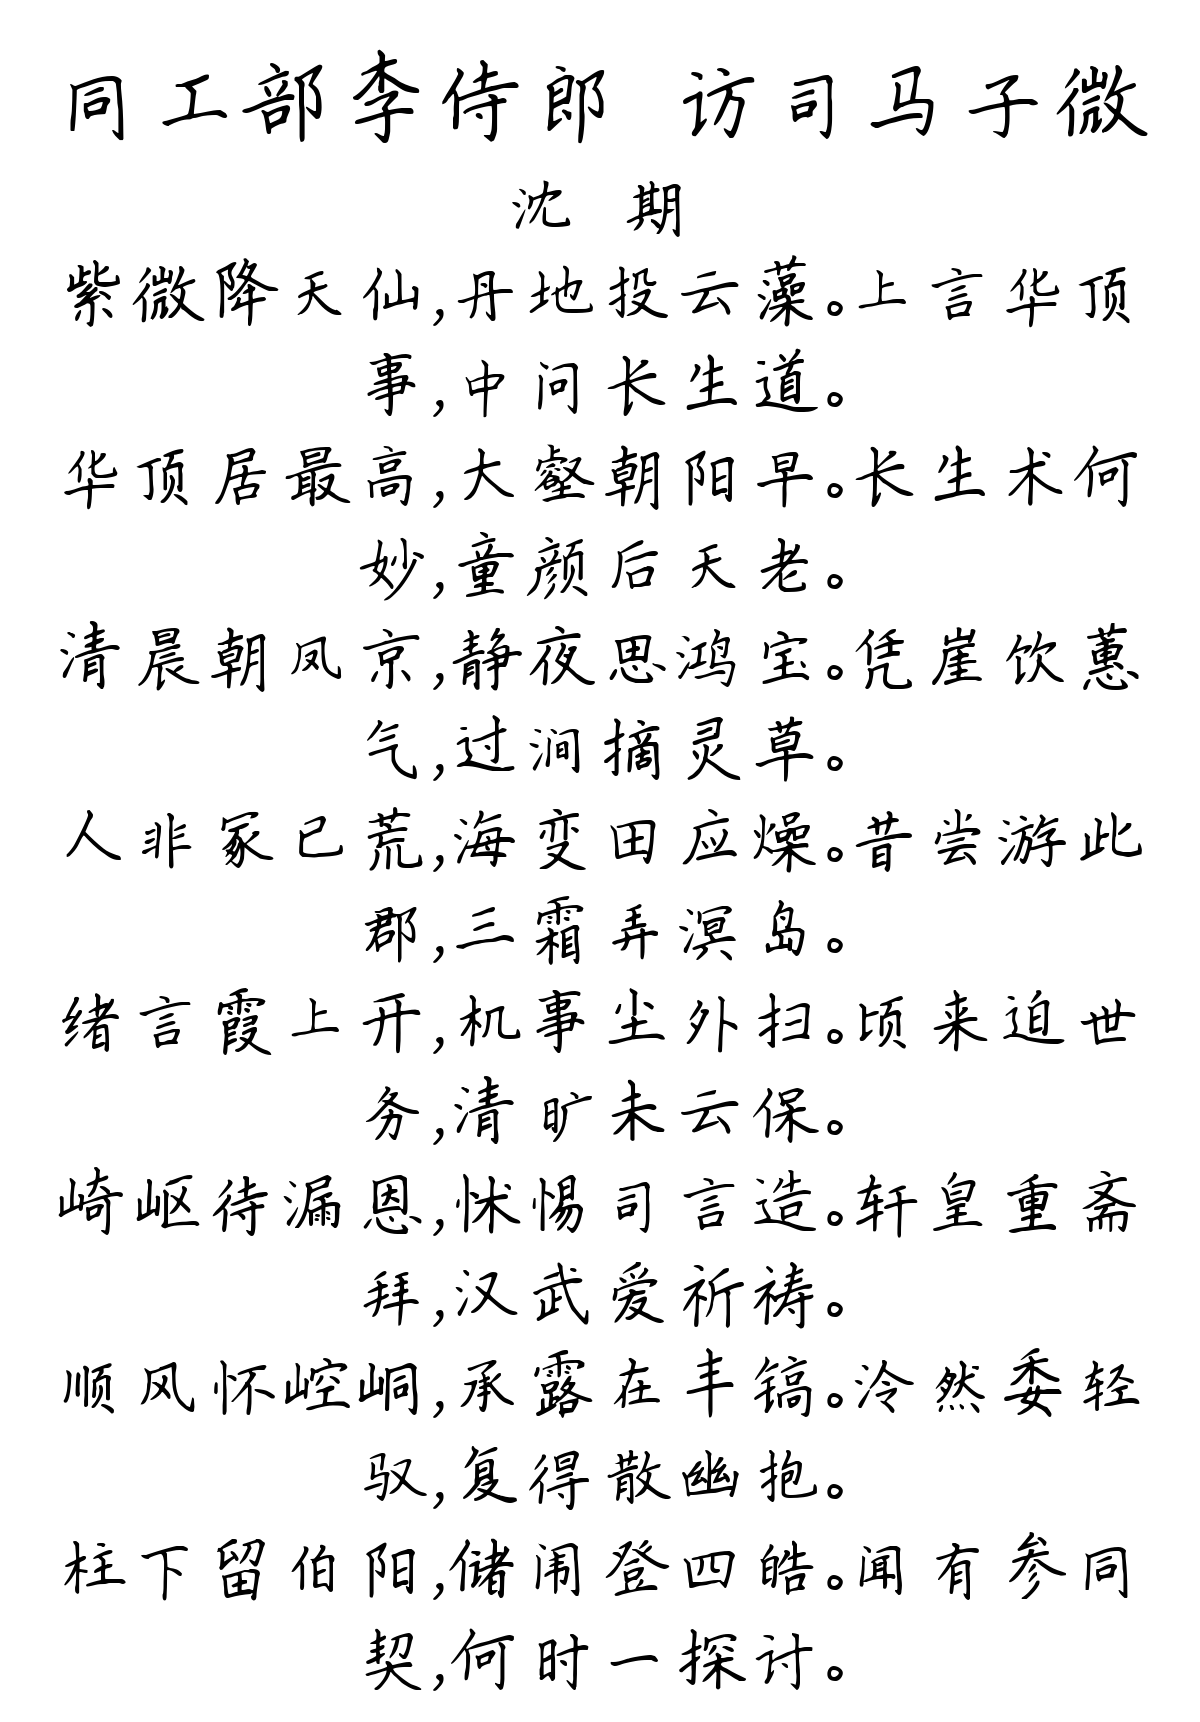 同工部李侍郎 访司马子微
沈 期
紫微降天仙,丹地投云藻。上言华顶
事,中问长生道。
华顶居最高,大壑朝阳早。长生术何
妙,童颜后天老。
清晨朝凤京,静夜思鸿宝。凭崖饮蕙
气,过涧摘灵草。
人非冢已荒,海变田应燥。昔尝游此
郡,三霜弄溟岛。
绪言霞上开,机事尘外扫。顷来迫世
务,清旷未云保。
崎岖待漏恩,怵惕司言造。轩皇重斋
拜,汉武爱祈祷。
顺风怀崆峒,承露在丰镐。泠然委轻
驭,复得散幽抱。
柱下留伯阳,储闱登四皓。闻有参同
契,何时一探讨。